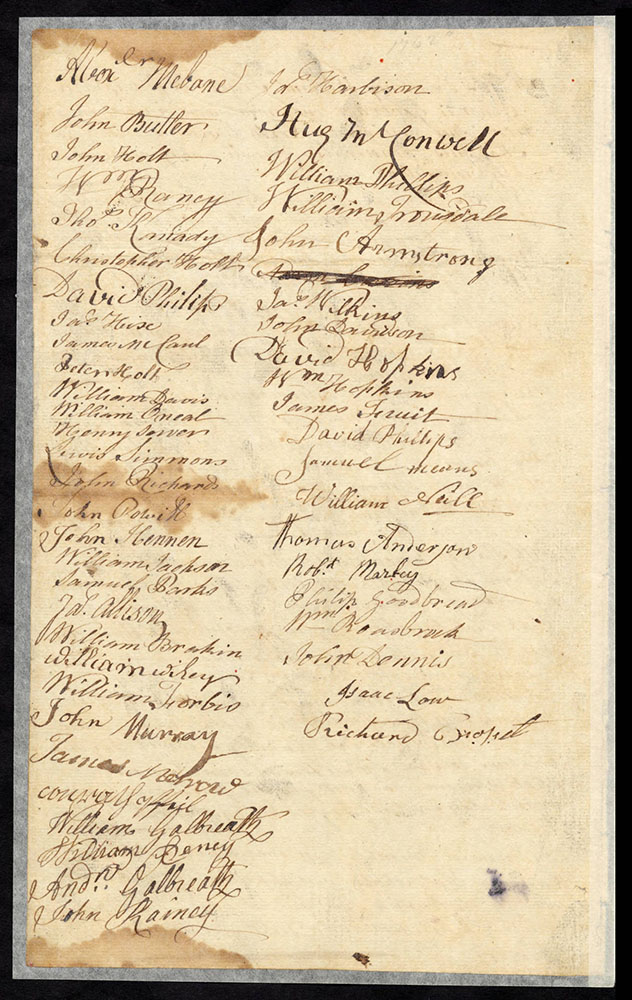 Alexr Mebane
John Butler
John Holt
Wm Raney
Thos. Kanady
Christopher Holt
David Philips
Jas Hise
James McCaul
Peter Holt
William Davis
William Oneal
Henry Sower
Lewis Simmons
John Richards
John
John Hennen
William Jackson
Samuel Parks
Jas. Allison
William Brakin
William Wiley
William Forbis
John Murray
James
William Galbreath
William Reney
Andrw Galbreath
John Rainey
Jas. Harbison
Hug McConwell
William Phillips
William Trousdale
John Armstrong
Jas. Wilkins
John Davidson
David Hopkins
Wm Hopkins
James
David Philips
Samuel means
William Null
Thomas Anderson
Robt. Marley
Philip Goodbread
Wm.
John Dennis
Isaac Low
Richard